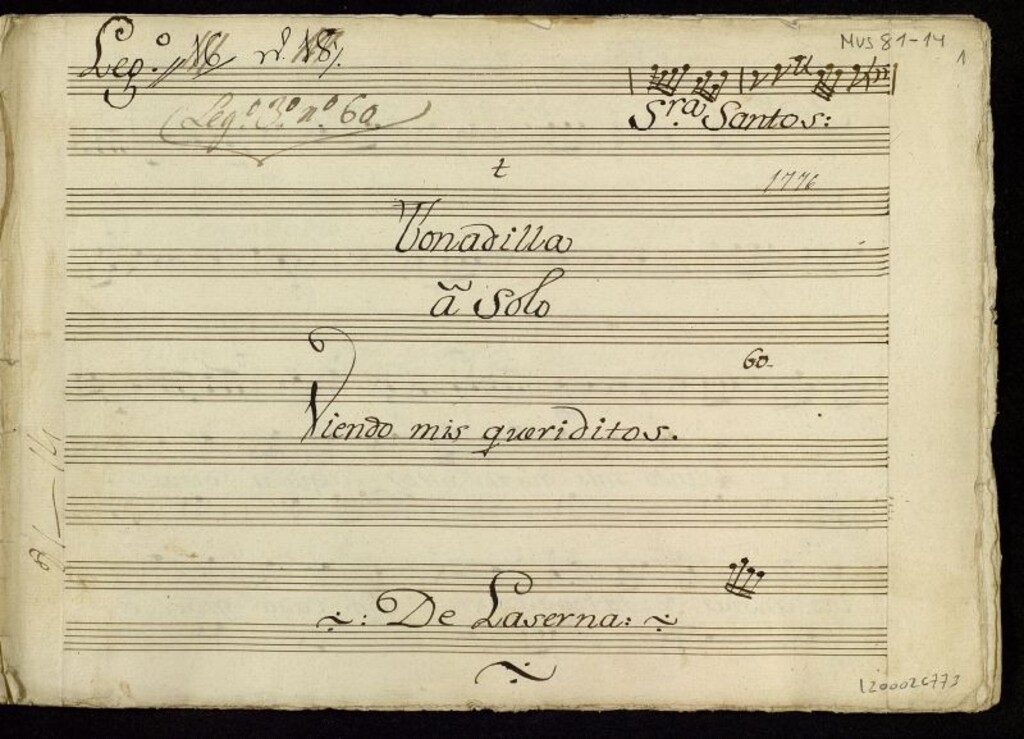 Leg.º 16 nº 18.
MUS 81-14
1
Legº 3º nº 60.
S.ra Santos:
t
1776
Tonadilla
a solo
60.
Viendo mis queriditos.
81-14
De Laserna:
1200026773